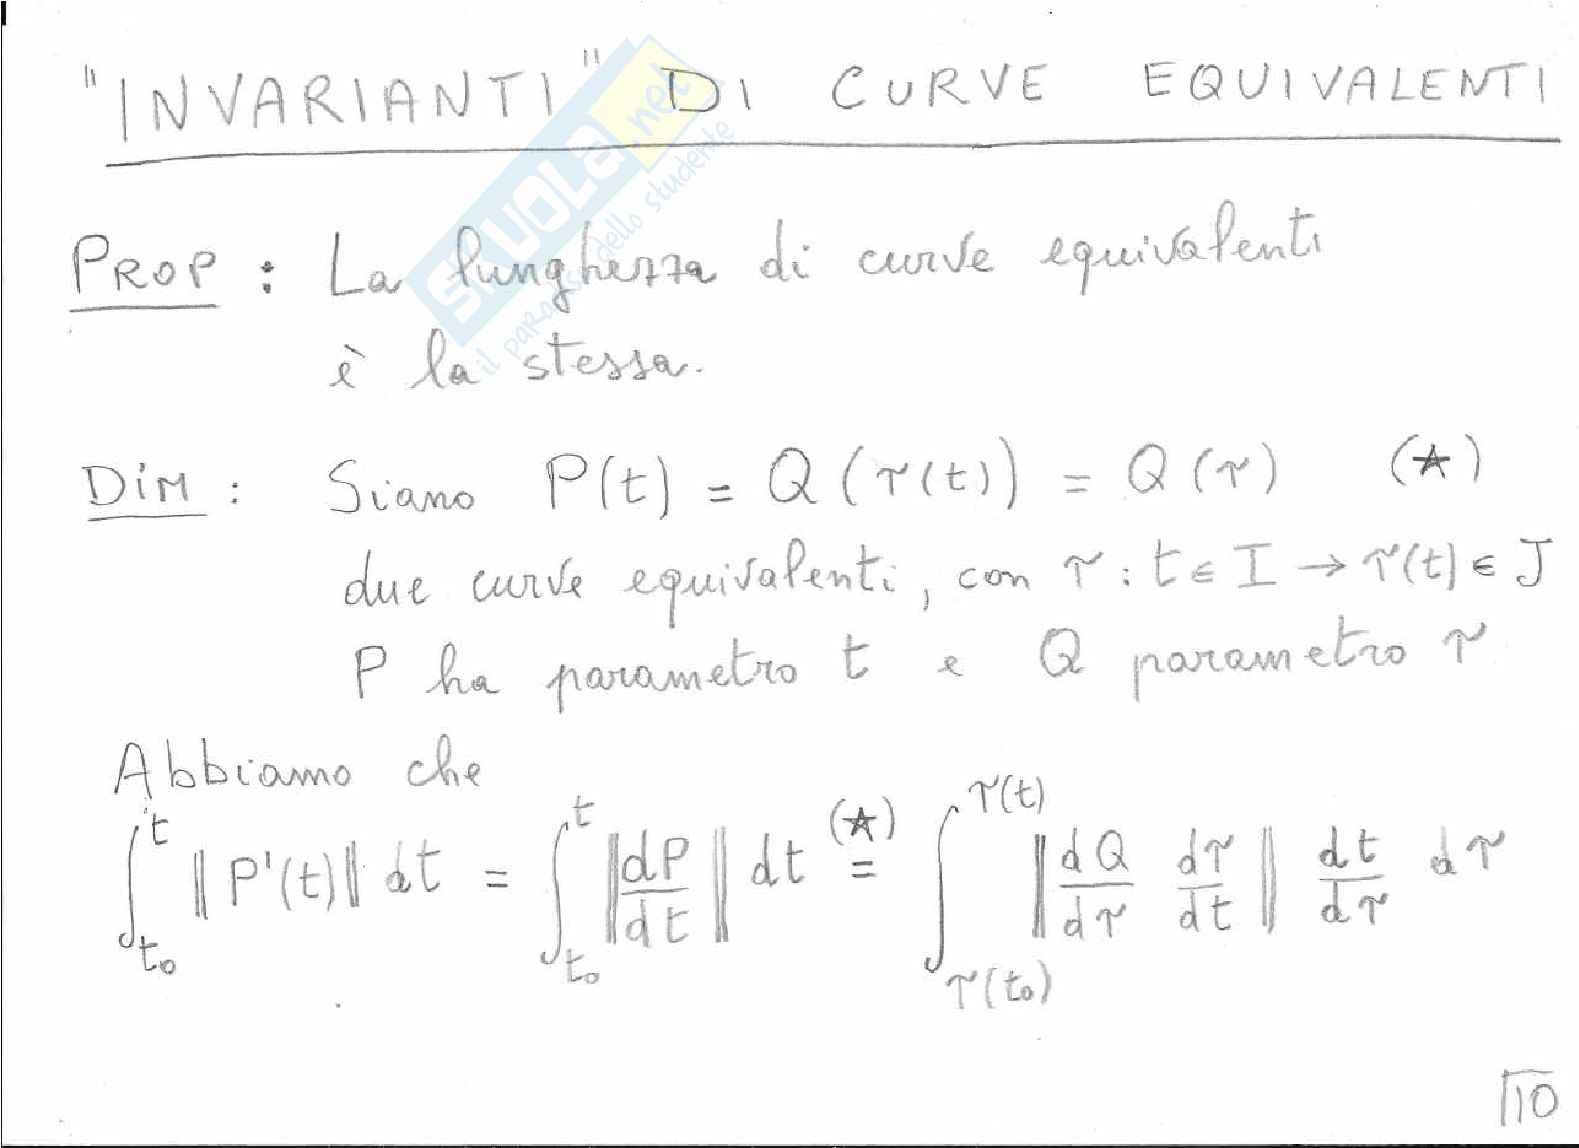 "INVARIANTI" DI CURVE EQUIVALENTI
PROP : La lunghezza di curve equivalenti
è la stessa.
DIM : Siano P(t) = Q(τ(t)) = Q(τ) (★)
due curve equivalenti, con τ : t ∈ I → τ(t) ∈ J
P ha parametro t e Q parametro τ
Abbiamo che
∫_{t₀}^{t} ‖P'(t)‖ dt = ∫_{t₀}^{t} ‖dP/dt‖ dt (★)= ∫_{τ(t₀)}^{τ(t)} ‖dQ/dτ dτ/dt‖ dt/dτ dτ
10
SKUOLA.net
il paradiso dello studente